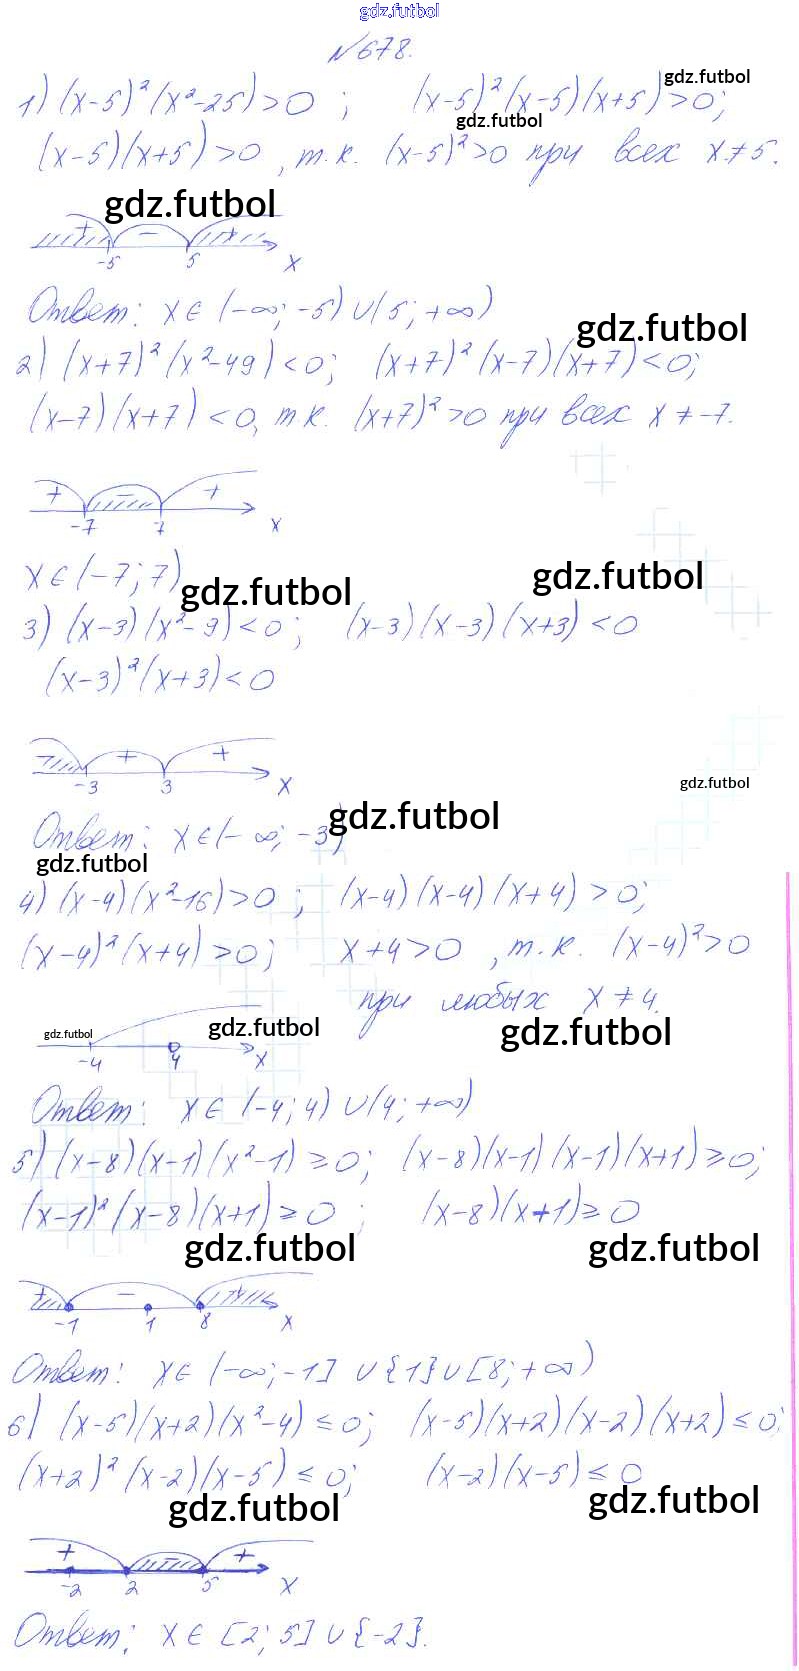 gdz.futbol
№678.
1) (x-5)²(x²-25)>0; (x-5)²(x-5)(x+5)>0;
gdz.futbol
gdz.futbol
(x-5)(x+5)>0, т.к. (x-5)²>0 при всех x≠5.
gdz.futbol
+ - +
-5 5 x
Ответ: x∈(-∞;-5)∪(5;+∞)
gdz.futbol
2) (x+7)²(x²-49)<0; (x+7)²(x-7)(x+7)<0;
(x-7)(x+7)<0, т.к. (x+7)²>0 при всех x≠-7.
+ - +
-7 7 x
x∈(-7;7)
gdz.futbol
gdz.futbol
3) (x-3)(x²-9)<0; (x-3)(x-3)(x+3)<0
(x-3)²(x+3)<0
- + +
-3 3 x
gdz.futbol
Ответ: x∈(-∞;-3)
gdz.futbol
gdz.futbol
4) (x-4)(x²-16)>0; (x-4)(x-4)(x+4)>0;
(x-4)²(x+4)>0; x+4>0, т.к. (x-4)²>0
при любых x≠4.
gdz.futbol
gdz.futbol
gdz.futbol
-4 4 x
Ответ: x∈(-4;4)∪(4;+∞)
5) (x-8)(x-1)(x²-1)≥0; (x-8)(x-1)(x-1)(x+1)≥0;
(x-1)²(x-8)(x+1)≥0; (x-8)(x+1)≥0
gdz.futbol
gdz.futbol
+ - +
-1 1 8 x
Ответ: x∈(-∞;-1]∪{1}∪[8;+∞)
6) (x-5)(x+2)(x²-4)≤0; (x-5)(x+2)(x-2)(x+2)≤0;
(x+2)²(x-2)(x-5)≤0; (x-2)(x-5)≤0
gdz.futbol
gdz.futbol
+ - +
-2 2 5 x
Ответ: x∈[2;5]∪{-2}.